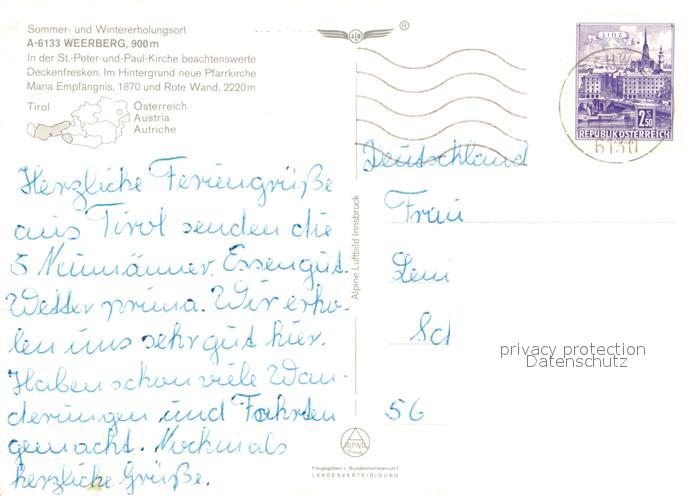 Sommer- und Wintererholungsort
A-6133 WEERBERG, 900 m
In der St.-Peter-und-Paul-Kirche beachtenswerte
Deckenfresken. Im Hintergrund neue Pfarrkirche
Maria Empfängnis, 1870 und Rote Wand, 2220 m
Tirol
Österreich
Austria
Autriche
Herzliche Feriengrüße
aus Tirol senden die
5 Neumänner. Essen gut.
Wetter prima. Wir erho-
len uns sehr gut hier.
Haben schon viele Wan-
derungen und Fahrten
gemacht. Nochmals
herzliche Grüße.
Alpine Luftbild Innsbruck
®
LINZ
2 S 50
REPUBLIK ÖSTERREICH
6130
Deutschland
Frau
Leni
Sch
56
privacy protection
Datenschutz
ALPINE
Freigegeben v. Bundesministerium f.
LANDESVERTEIDIGUNG